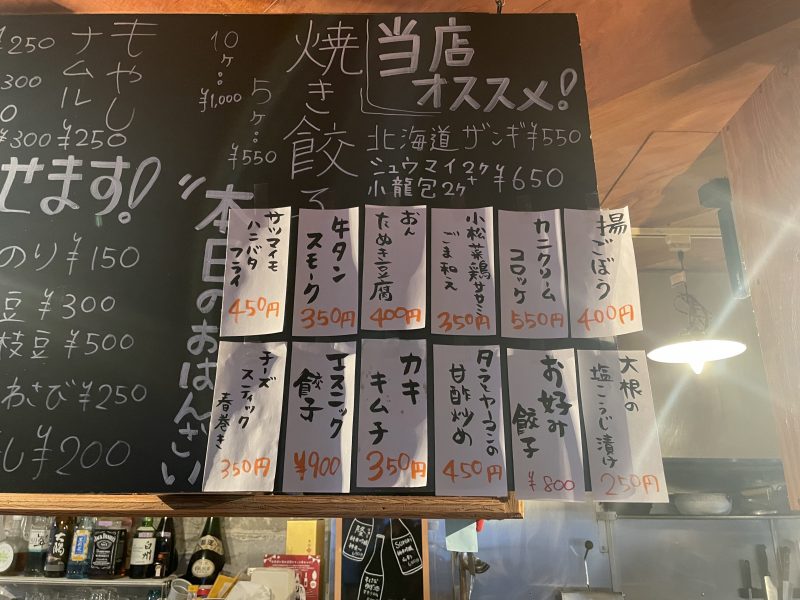 当店
オススメ!
北海道ザンギ¥550
シュウマイ2ケ
小龍包2ケ
¥650
焼き餃子
5ケ:¥550
10ケ:¥1,000
もやし
ナムル
¥250
¥250
300
¥300
せます!
のり ¥150
豆 ¥300
枝豆 ¥500
わさび ¥250
し ¥200
本日のおばんざい
揚ごぼう
400円
カニクリーム
コロッケ
550円
小松菜鶏ササミ
ごま和え
350円
おん
たぬき豆腐
400円
牛タン
スモーク
350円
サツマイモ
ハニバタ
フライ
450円
大根の
塩こうじ漬け
250円
お好み
餃子
¥800
甘酢炒め
450円
カキ
キムチ
350円
エスニック
餃子
¥900
チーズ
スティック
春巻き
350円